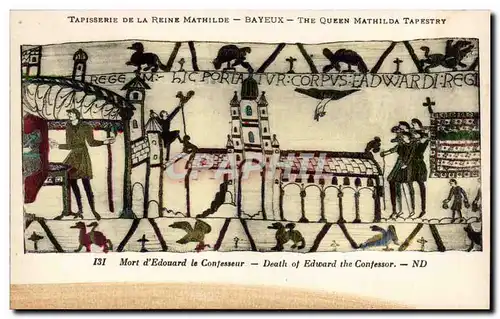 TAPISSERIE DE LA REINE MATHILDE – BAYEUX – THE QUEEN MATHILDA TAPESTRY
REGEM: hIC PORTATVR: CORPVS: EADWARDI: REGI
Carte-Postale.com
131 Mort d'Edouard le Confesseur – Death of Edward the Confessor. – ND